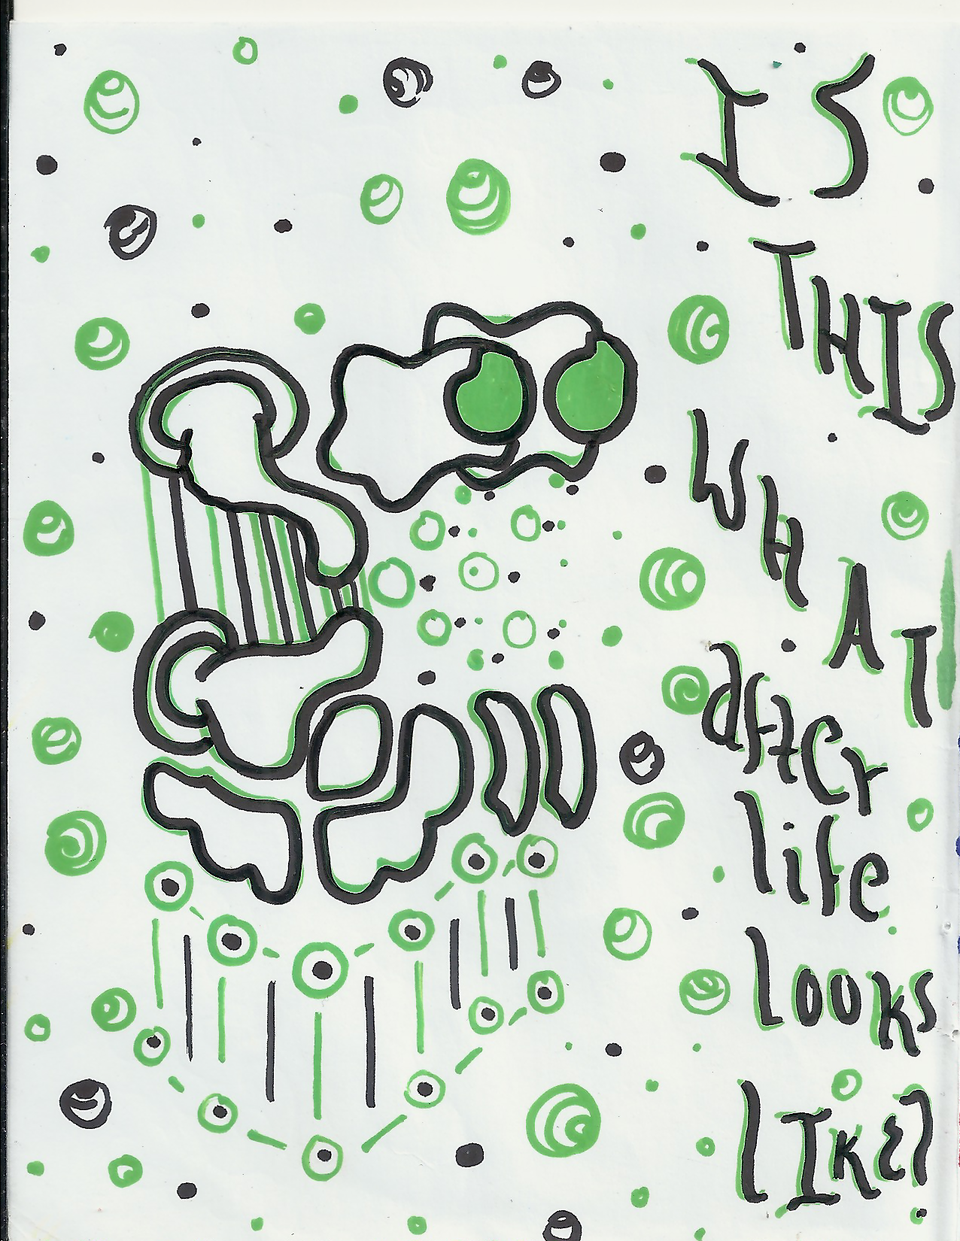 IS
THIS
WHAT
after
life
looks
LIKE?